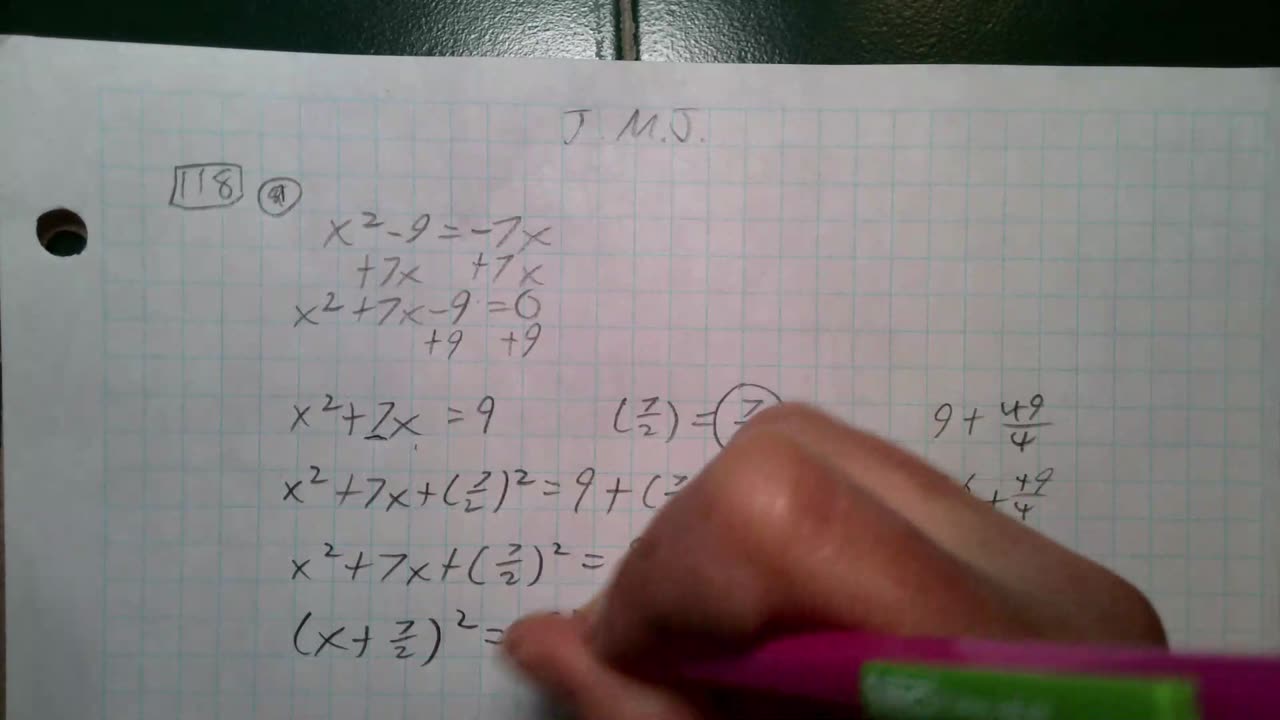 J.M.J.
118
x² - 9 = -7x
+7x +7x
x² + 7x - 9 = 0
+9 +9
x² + 7x = 9 (7/2) = 9 + 49/4
x² + 7x + (7/2)² = 9 + ( + 49/4
x² + 7x + (7/2)² =
(x + 7/2)² =